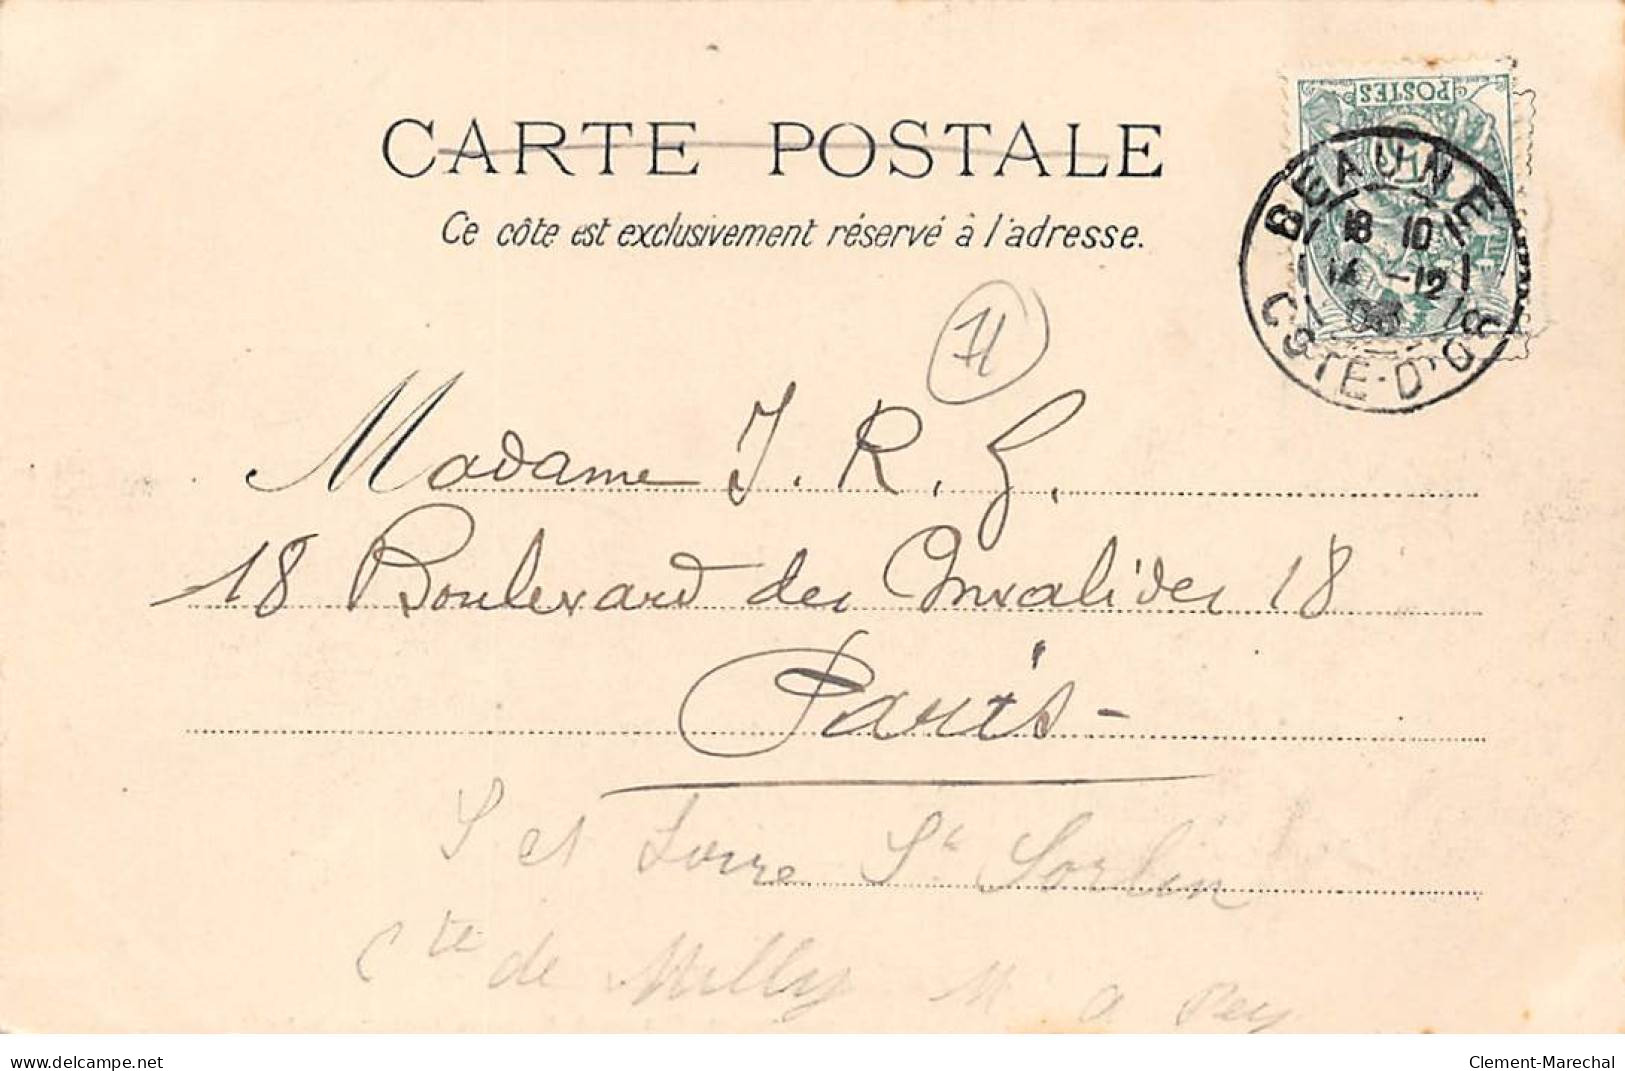 CARTE POSTALE
Ce côte est exclusivement réservé à l'adresse.
POSTES
BEAUNE
18 10
14 -12
03
COTE-D'OR
71
Madame J. R. G.
18 Boulevard des Invalides 18
Paris-
S et Loire St Sorlin
Cte de Milly M a Pey
delcampe.net
Clement-Marechal